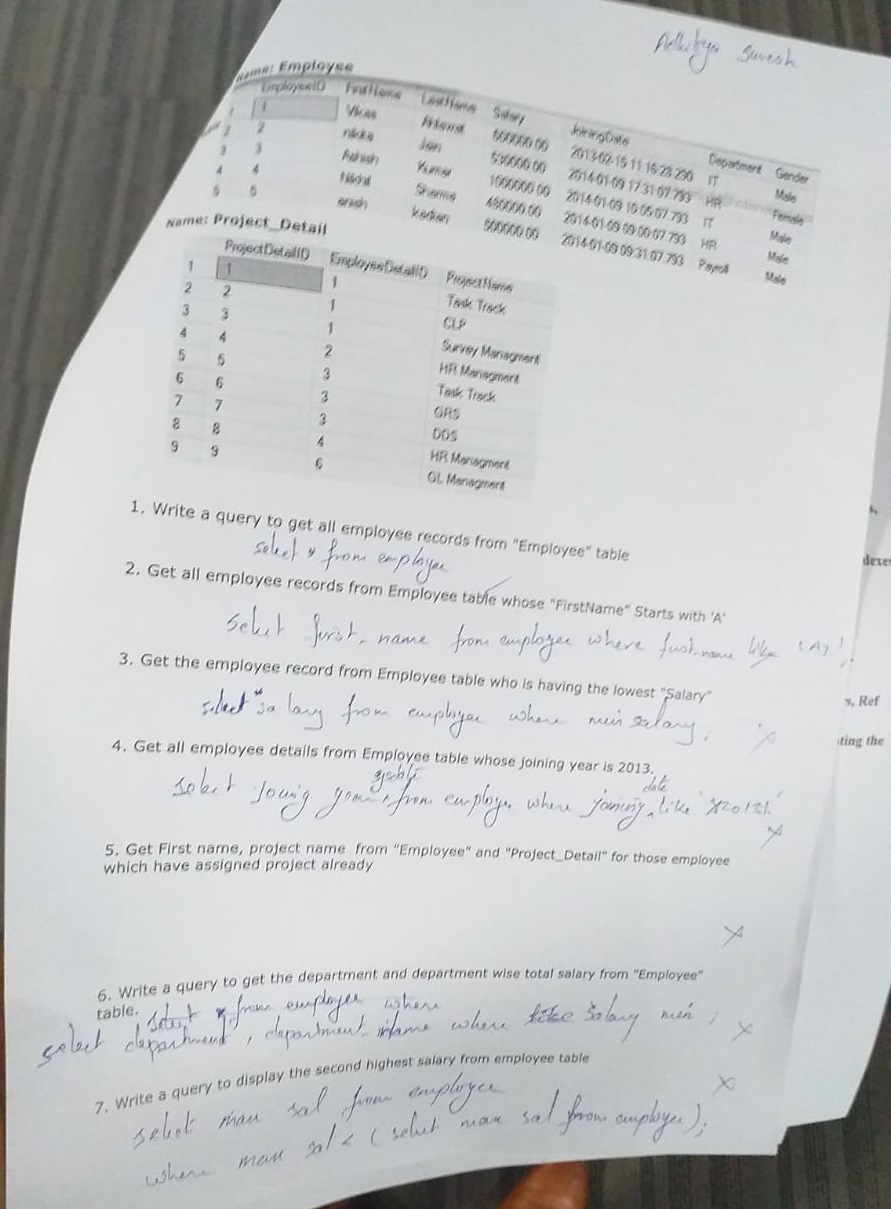 Suresh
Name: Employee
EmployeeID FirstName LastName Salary JoiningDate Department Gender
1 1 Vikas Ahlawat 600000.00 2013-02-15 11:16:28.290 IT Male
2 2 nikita Jain 530000.00 2014-01-09 17:31:07.793 HR Female
3 3 Ashish Kumar 1000000.00 2014-01-09 10:05:07.793 IT Male
4 4 Nikhil Sharma 480000.00 2014-01-09 09:00:07.793 HR Male
5 5 anish kadian 500000.00 2014-01-09 09:31:07.793 Payroll Male
Name: Project_Detail
ProjectDetailID EmployeeDetailID ProjectName
1 1 1 Task Track
2 2 1 CLP
3 3 1 Survey Managment
4 4 2 HR Managment
5 5 3 Task Track
6 6 3 GRS
7 7 3 DDS
8 8 4 HR Managment
9 9 6 GL Managment
1. Write a query to get all employee records from "Employee" table
select * from employee
2. Get all employee records from Employee table whose "FirstName" Starts with 'A'
select first_name from employee where first_name like
3. Get the employee record from Employee table who is having the lowest "Salary"
select salary from employee where min salary;
4. Get all employee details from Employee table whose joining year is 2013.
date
select from employee where joining like
5. Get First name, project name from "Employee" and "Project_Detail" for those employee
which have assigned project already
6. Write a query to get the department and department wise total salary from "Employee"
table. select * from employee where
select department, department where salary min;
7. Write a query to display the second highest salary from employee table
select max sal from employee
where max sal < (select max sal from employee);
dexes
s, Ref
ting the